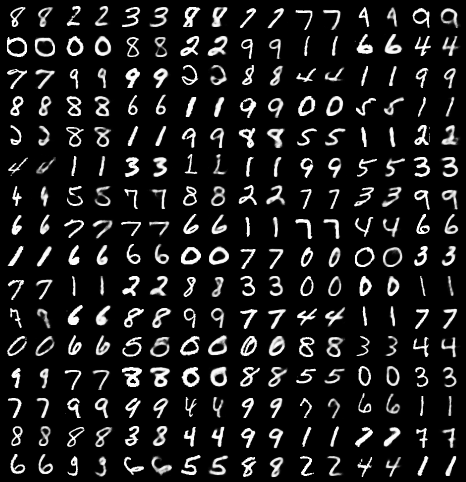 8 8 2 2 3 3 8 8 7 7 7 7 9 9 9 9
0 0 0 0 8 8 2 2 9 9 1 1 6 6 4 4
7 7 9 9 9 9 2 2 8 8 4 4 1 1 9 9
8 8 8 8 6 6 1 1 9 9 0 0 5 5 1 1
2 2 8 8 1 1 9 9 8 8 5 5 1 1 2 2
4 4 1 1 3 3 1 1 1 1 9 9 5 5 3 3
4 4 5 5 7 7 8 8 2 2 7 7 3 3 9 9
6 6 7 7 7 7 6 6 1 1 7 7 4 4 6 6
1 1 6 6 6 6 0 0 7 7 0 0 0 0 3 3
7 7 1 1 2 2 8 8 3 3 0 0 0 0 1 1
7 7 6 6 8 8 9 9 7 7 4 4 1 1 7 7
0 0 6 6 5 5 0 0 0 0 8 8 3 3 4 4
9 9 7 7 8 8 0 0 8 8 5 5 0 0 3 3
7 7 9 9 9 9 4 4 9 9 7 7 6 6 1 1
8 8 8 8 3 8 4 4 9 9 1 1 7 7 7 7
6 6 9 3 6 6 5 5 8 8 2 2 4 4 1 1